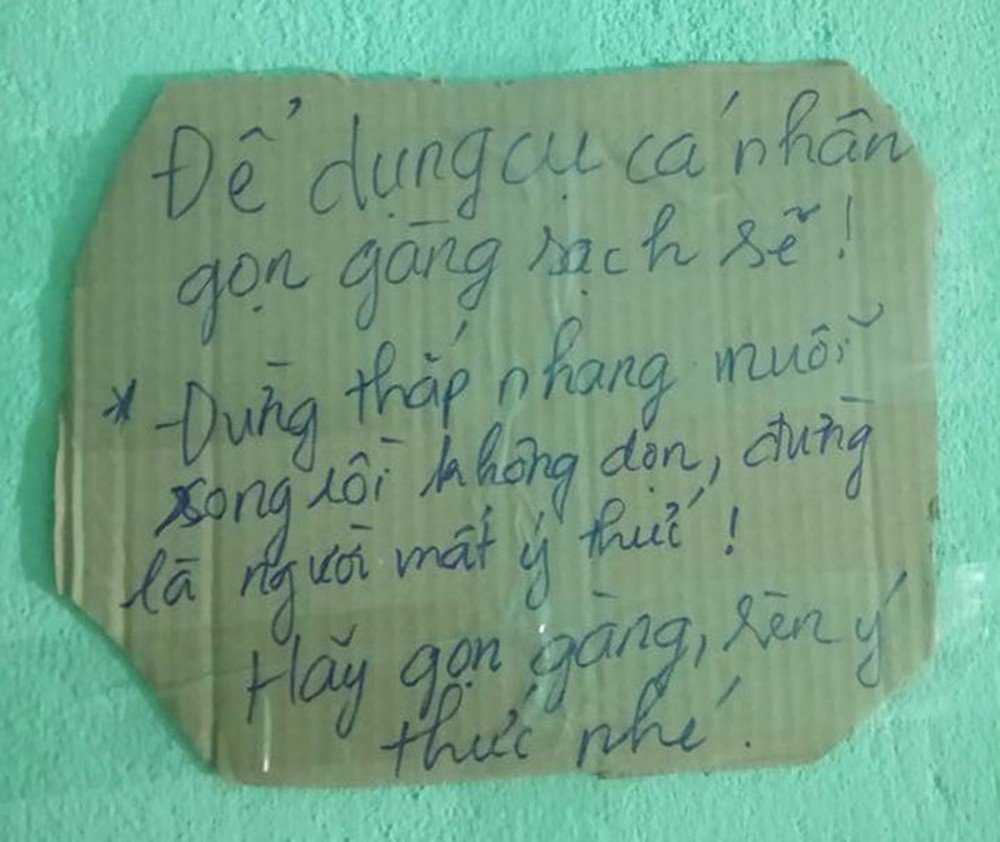 Để dụng cụ cá nhân
gọn gàng sạch sẽ!
* Đừng thắp nhang muỗi
xong rồi không dọn, đừng
là người mất ý thức!
Hãy gọn gàng, rèn ý
thức nhé.